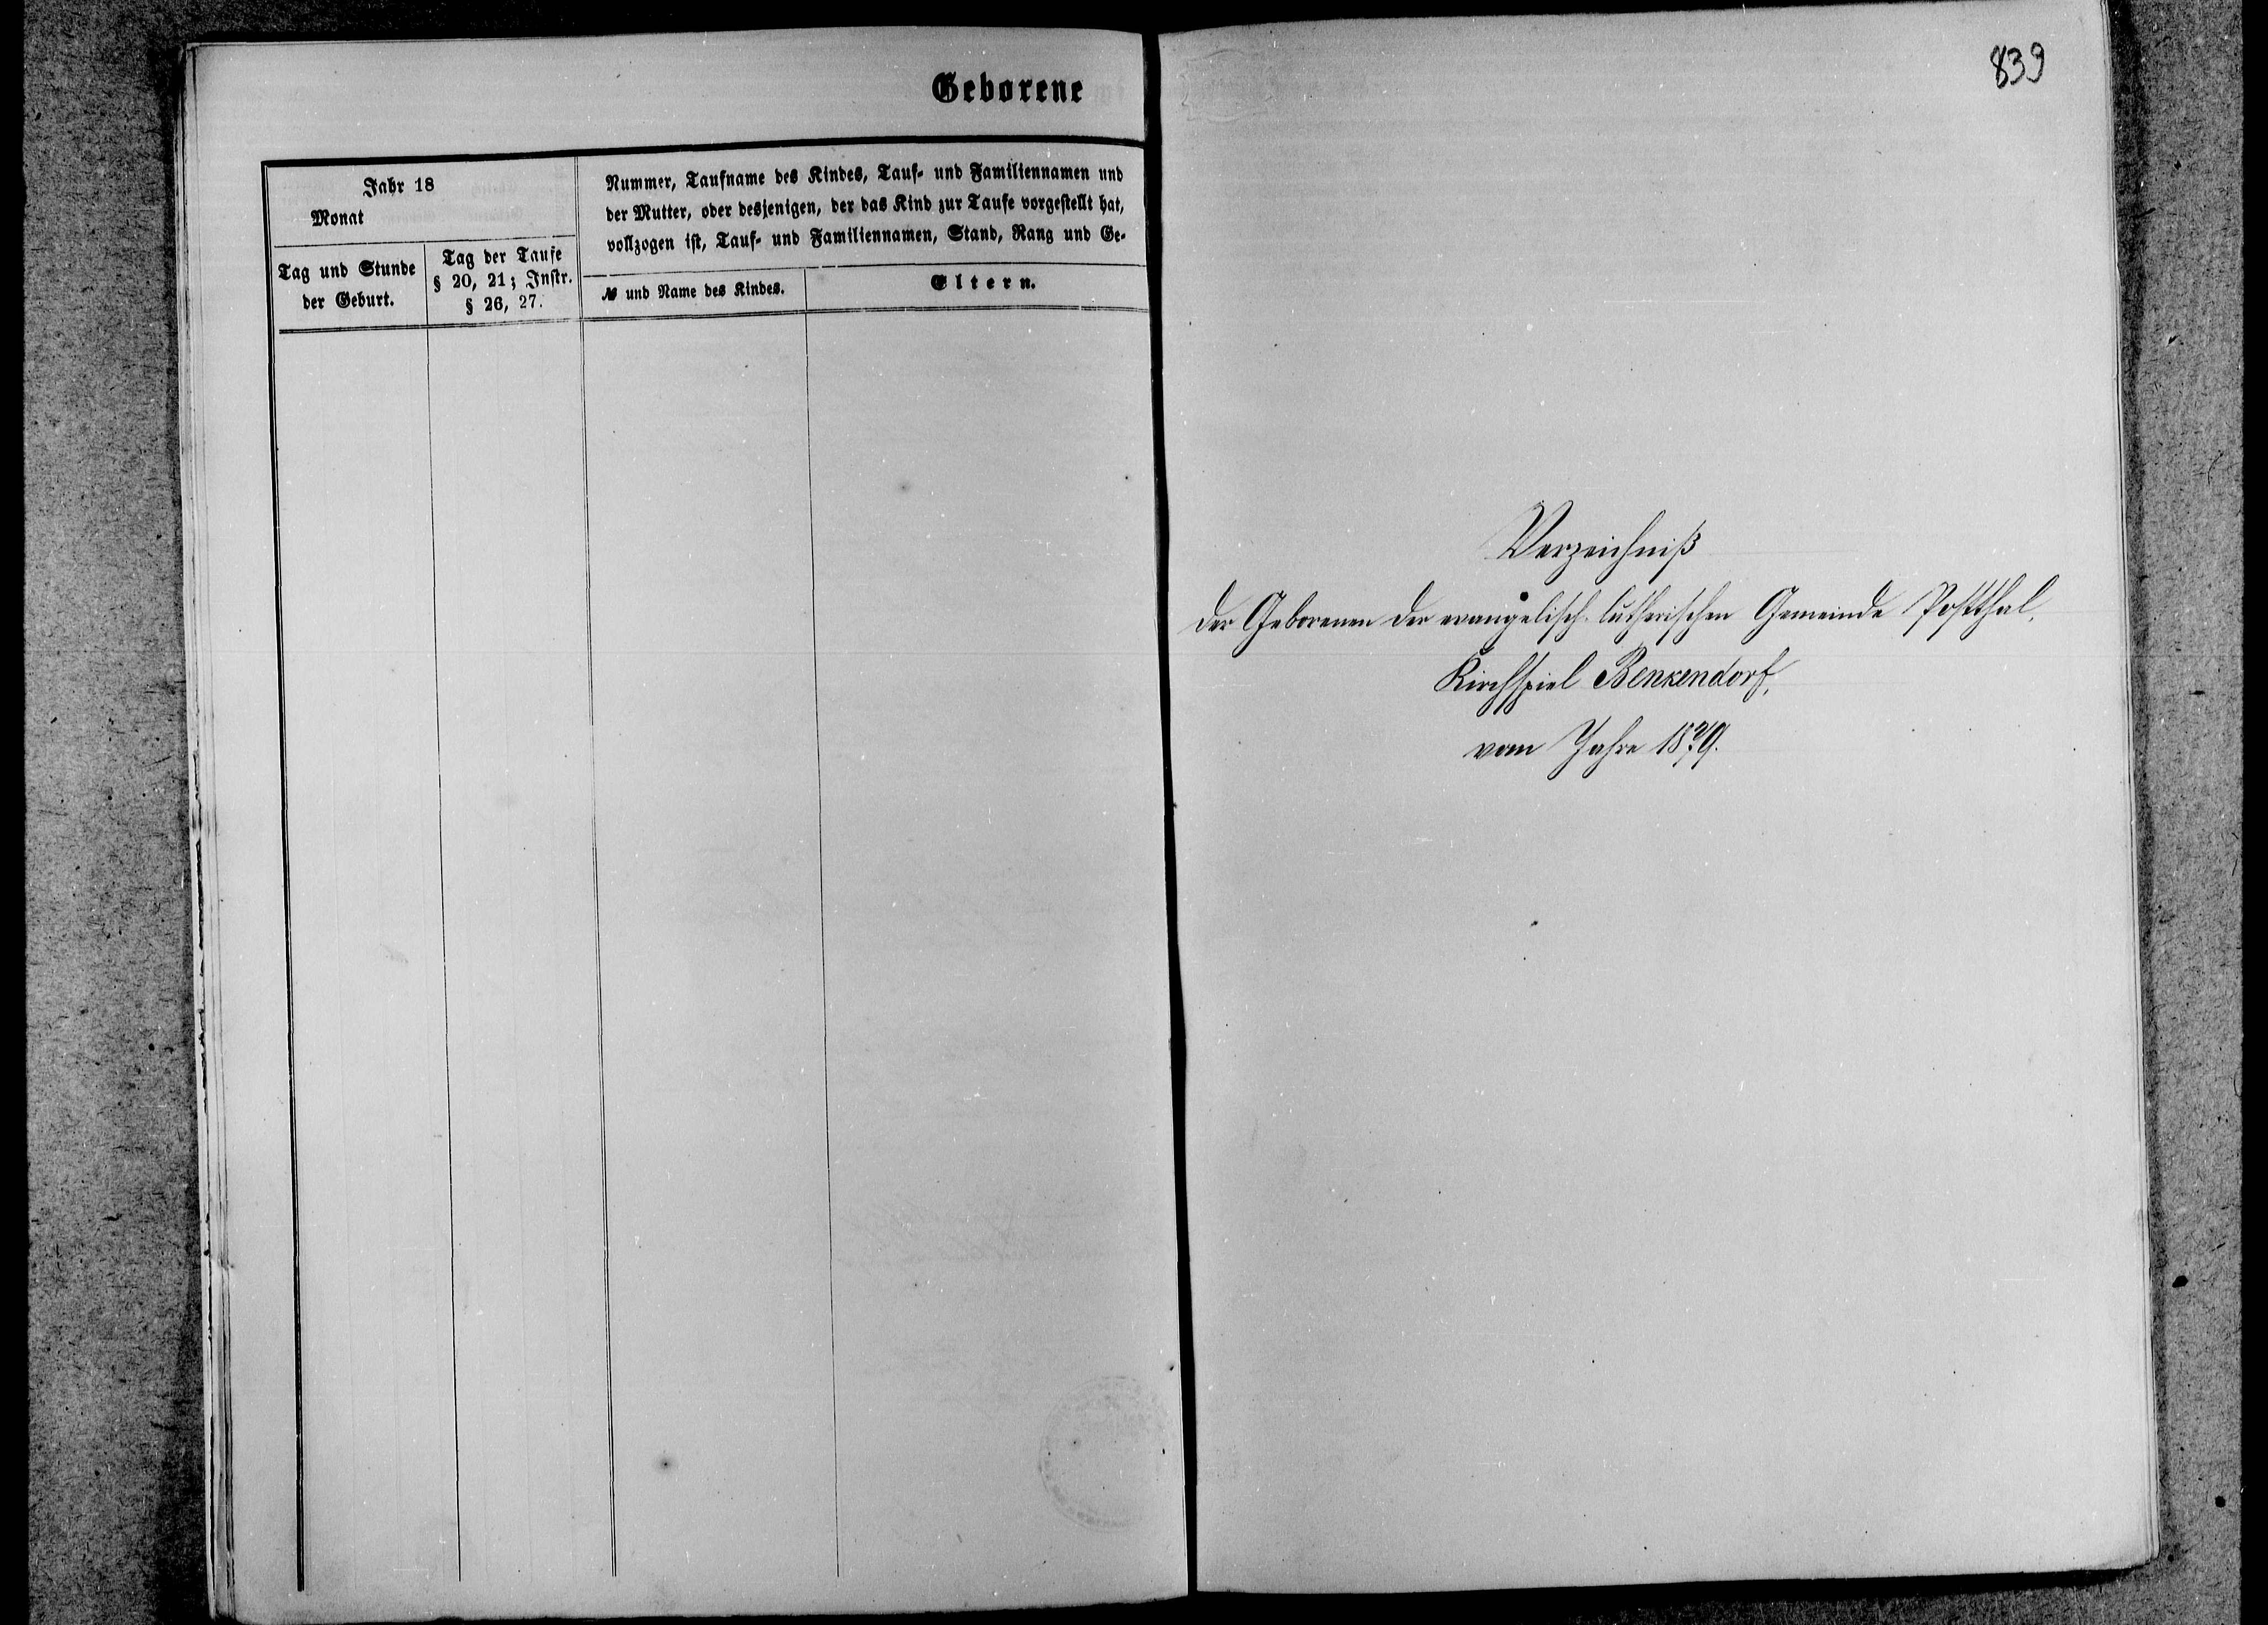 Geborene
Jahr 18
Monat
Tag und Stunde
der Geburt.
Tag der Taufe
§ 20, 21; Instr.
§ 26, 27.
Nummer, Taufname des Kindes, Tauf- und Familiennamen und
der Mutter, oder desjenigen, der das Kind zur Taufe vorgestellt hat,
vollzogen ist, Tauf- und Familiennamen, Stand, Rang und Ge-
№ und Name des Kindes.
Eltern.
839
Verzeichniß
der Geborenen der evangelisch-lutherischen Gemeinde Postthal,
Kirchspiel Benkendorf,
vom Jahre 1879.